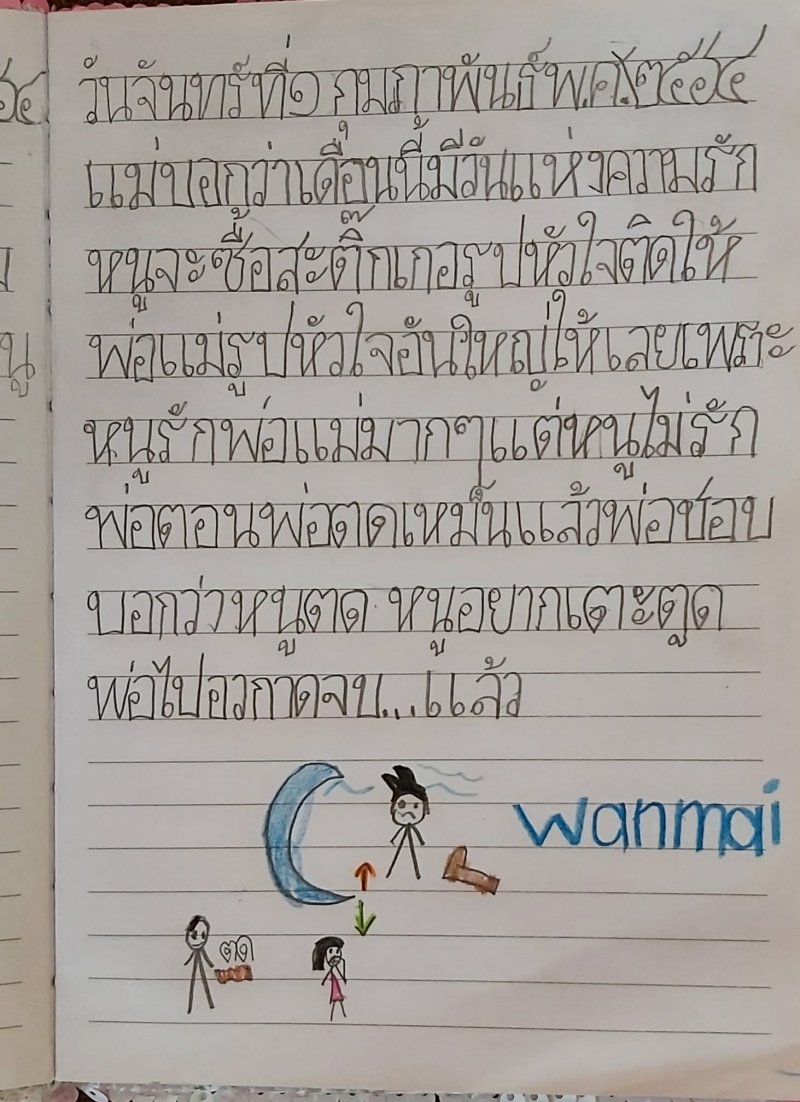 วันจันทร์ที่๑ กุมภาพันธ์พ.ศ.๒๕๖๔
แม่บอกว่าเดือนนี้มีวันแห่งความรัก
หนูจะซื้อสะติ๊กเกอรูปหัวใจติดให้
พ่อแม่รูปหัวใจอันใหญ่ให้เลยเพราะ
หนูรักพ่อแม่มากๆแต่หนูไม่รัก
พ่อตอนพ่อตดเหม็นแล้วพ่อชอบ
บอกว่าหนูตด หนูอยากเตะตูด
พ่อไปอวกาดจบ...แล้ว
wanmai
ตด